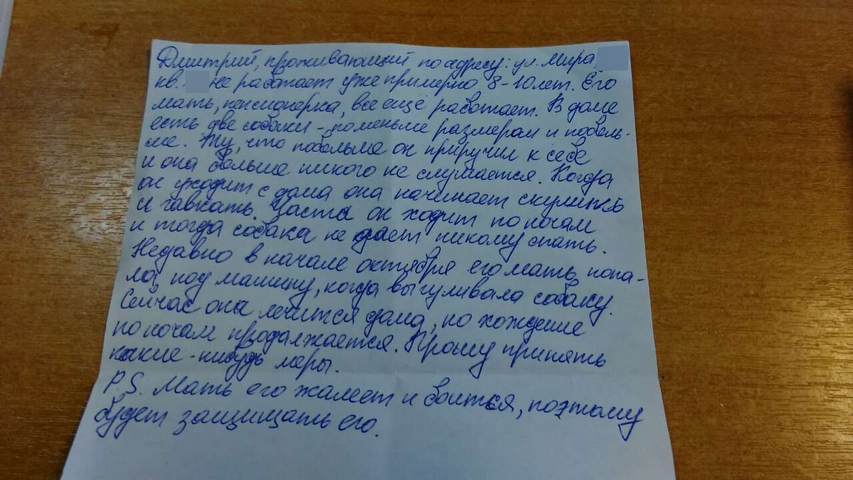 Дмитрий, проживающий по адресу: ул. Мира
кв. не работает уже примерно 8-10 лет. Его
мать, пенсионерка, всё ещё работает. В доме
есть две собаки - поменьше размером и поболь-
ше. Ту, что побольше он приручил к себе
и она больше никого не слушается. Когда
он уходит с дома она начинает скулить
и гавкать. Часто он ходит по ночам
и тогда собака не дает никому спать.
Недавно в начале октября его мать попа-
ла под машину, когда выгуливала собаку.
Сейчас она лечится дома, но хождение
по ночам продолжается. Прошу принять
какие-нибудь меры.
P.S. Мать его жалеет и боится, поэтому
будет защищать его.